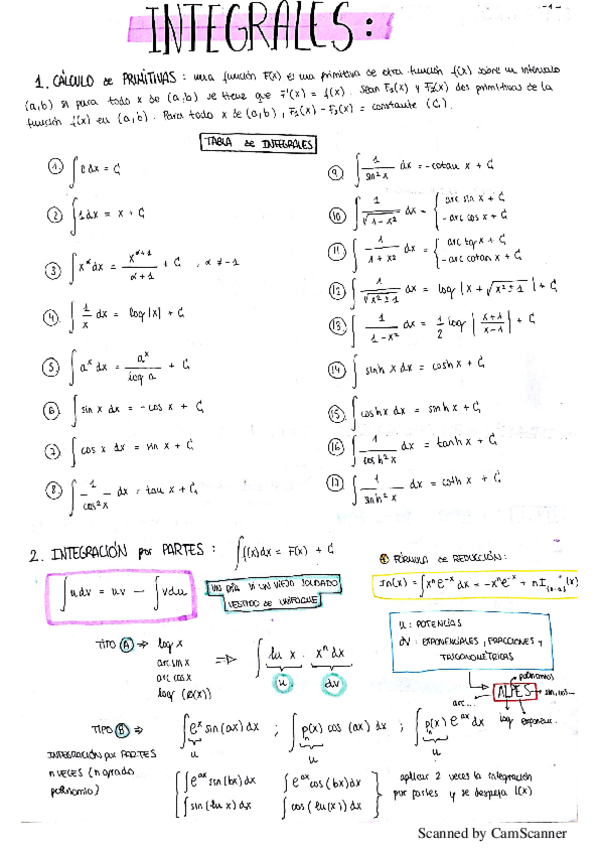 -1-
INTEGRALES:
1. CÁLCULO de PRIMITIVAS: una función F(x) es una primitiva de otra función f(x) sobre un intervalo
(a,b) si para todo x de (a,b) se tiene que F'(x) = f(x). Sean F₁(x) y F₂(x) dos primitivas de la
función f(x) en (a,b). Para todo x de (a,b), F₁(x) - F₂(x) = constante (C).
TABLA de INTEGRALES
1. ∫ 0 dx = C
2. ∫ 1 dx = x + C
3. ∫ x^α dx = x^(α+1) / (α+1) + C, α ≠ -1
4. ∫ 1/x dx = log|x| + C
5. ∫ a^x dx = a^x / log a + C
6. ∫ sin x dx = -cos x + C
7. ∫ cos x dx = sin x + C
8. ∫ 1/cos²x dx = tan x + C
9. ∫ 1/sin²x dx = -cotan x + C
10. ∫ 1/√(1-x²) dx = { arc sin x + C
- arc cos x + C
11. ∫ 1/(1+x²) dx = { arc tg x + C
- arc cotan x + C
12. ∫ 1/√(x²±1) dx = log |x + √(x²±1)| + C
13. ∫ 1/(1-x²) dx = 1/2 log |(x+1)/(x-1)| + C
14. ∫ sinh x dx = cosh x + C
15. ∫ cosh x dx = sinh x + C
16. ∫ 1/cosh²x dx = tanh x + C
17. ∫ 1/sinh²x dx = coth x + C
2. INTEGRACIÓN por PARTES: ∫ f(x) dx = F(x) + C
∫ u dv = uv - ∫ v du
UN DÍA VI UN VIEJO SOLDADO
VESTIDO de UNIFORME
FÓRMULA de REDUCCIÓN:
In(x) = ∫ xⁿe^-x dx = -xⁿe^-x + n I(n-1)(x)
u: POTENCIAS
dv: EXPONENCIALES, FRACCIONES y
TRIGONOMÉTRICAS
polinomios
ALPES
sin, cos...
arc...
log
exponen.
TIPO A ⇒ log x
arc sin x
arc cos x
log (p(x))
⇒ ∫ ln x · xⁿ dx
u dv
TIPO B ⇒ ∫ e^x sin(ax) dx ; ∫ p(x) cos(ax) dx ; ∫ p(x) e^ax dx
u n u n u
INTEGRACIÓN por PARTES
n VECES (n grado
polinomio)
∫ e^ax sin(bx) dx ∫ e^ax cos(bx) dx
∫ sin(ln x) dx ∫ cos(ln(x)) dx
aplicar 2 veces la integración
por partes y se despeja I(x)
Scanned by CamScanner